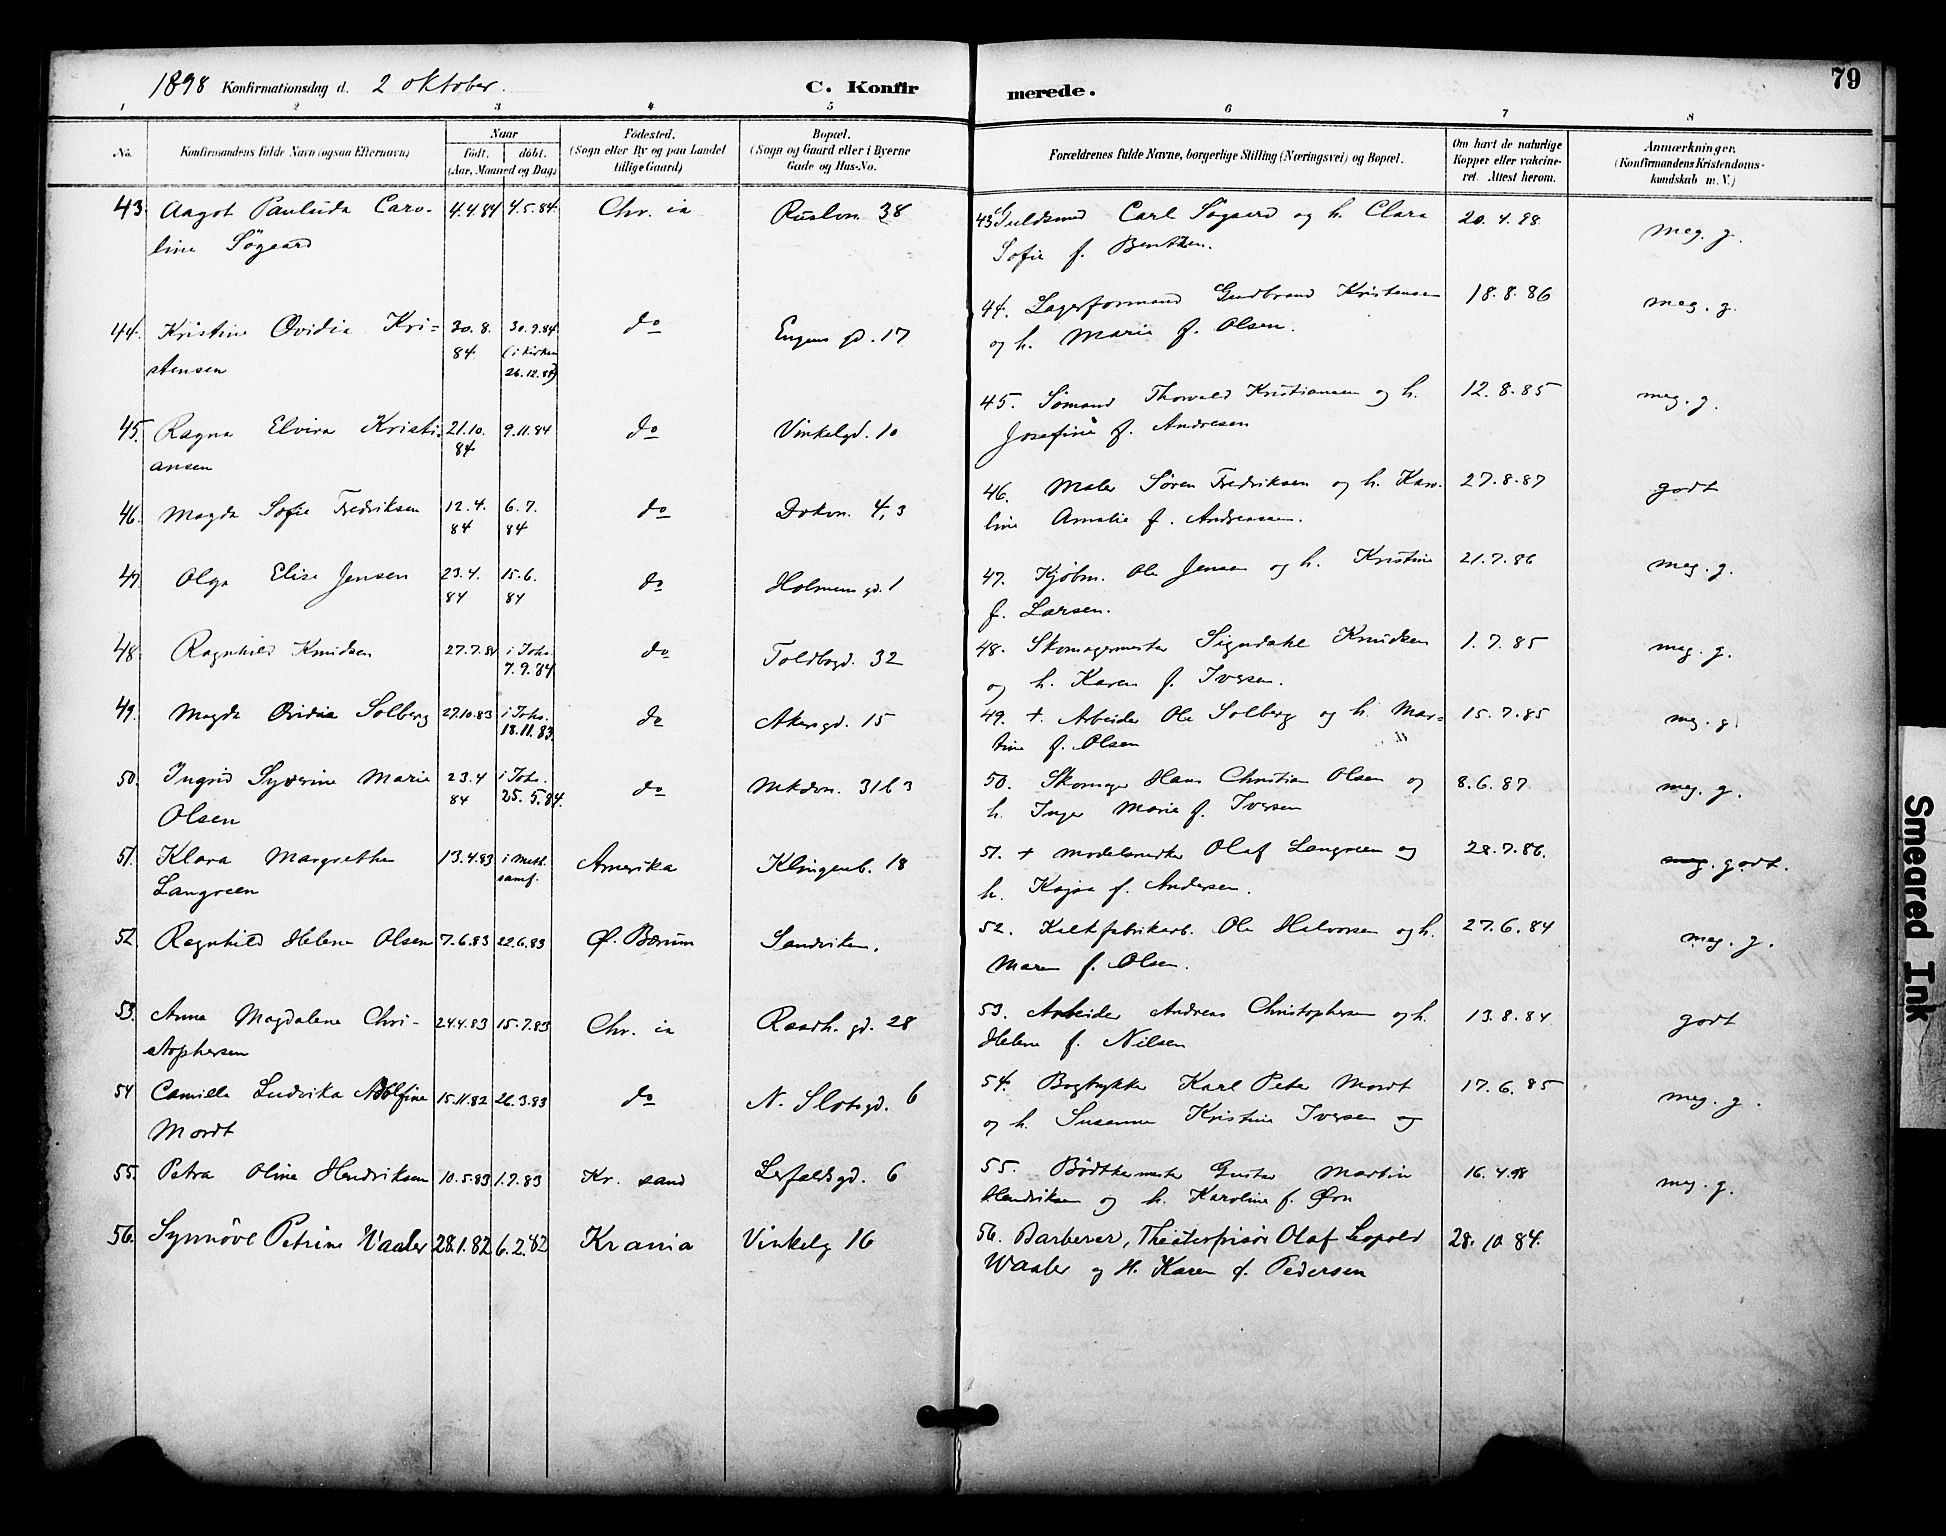 1898 Konfirmationsdag d. 2 oktober. C. Konfirmerede. 79
1 2 3 4 5 6 7 8
No. Konfirmandens fulde Navn (ogsaa Efternavn) Naar født. døbt. (Aar, Maaned og Dag) Fødested. (Sogn eller By og paa Landet tillige Gaard) Bopæl. (Sogn og Gaard eller i Byerne Gade og Hus-No. Forældrenes fulde Navne, borgerlige Stilling (Næringsvei) og Bopæl. Om havt de naturlige Kopper eller vakcineret. Attest herom. Anmærkninger. (Konfirmandens Kristendomskundskab m. V.)
43. Aagot Pauluda Caro- 4.4.84 4.5.84 Chr. ia Ruslvn. 38 43 Guldsmed Carl Søgaard og h. Clara 20.4.98 meg. g.
line Søgaard Sofie f. Bentzen.
44. Kristine Ovidia Kri- 30.8. 30.9.84 do Eugens gd. 17 44. Lagerformand Gudbrand Kristensen 18.8.86 meg. g.
stensen 84. (i kirken 26.12.84) og h. Marie f. Olsen.
45. Ragna Elvira Kristi- 21.10. 9.11.84 do Vinkelgd. 10 45. Sømand Thorvald Kristiansen og h. 12.8.85 meg. g.
ansen 84 Josefine f. Andresen
46. Magda Sofie Fredriksen 12.4. 6.7. do Dokvn. 4, 3 46. Maler Søren Fredriksen og h. Karo- 27.8.87 godt
84 84 line Amalie f. Andreassen.
47. Olga Elise Jensen 23.4. 15.6. do Holmens gd. 1 47. Kjøbm. Ole Jensen og h. Kristine 21.7.86 meg. g.
84 84 f. Larsen.
48. Ragnhild Knudsen 27.7.84 i Johs. do Toldbogd. 32 48. Skomagermester Sigvdahl Knudsen 1.7.85 meg. g.
7.9.84 og h. Karen f. Iversen.
49. Magda Ovidia Solberg 27.10.83 i Johs. do Akersgd. 15 49. + Arbeider Ole Solberg og h. Mar- 15.7.85 meg. g
18.11.83. tine f. Olsen
50. Ingrid Syverine Marie 23.4 i Johs. do Mkdvn. 31 b 3 50. Skomager Hans Christian Olsen og 8.6.87 meg. g.
Olsen 84 25.5.84. h. Inger Marie f. Iversen
51. Klara Margrethe 13.4.83 i Meth. Amerika Klingenb. 18 51. + Modelsnedker Olaf Langreen og 28.7.86. meg. godt.
Langreen samf. h. Kajsa f. Andersen.
52. Ragnhild Helene Olsen 7.6.83 22.6.83 Ø. Bærum Sandviken. 52. Kalkfabrikarb. Ole Halvorsen og h. 27.6.84 meg. g.
Maren f. Olsen.
53. Anna Magdalene Chri- 24.4.83 15.7.83 Chr. ia Raadh. gd. 28 53. Arbeider Andreas Christophersen og h. 13.8.84 godt
stophersen Helene f. Nilsen
54 Camilla Ludvika Adolfine 15.11.82 26.3.83 do N. Slotsgd. 6 54. Bogtrykker Karl Peter Mordt 17.6.85 meg. g.
Mordt og h. Susanne Kristine Iversen og
55. Petra Oline Hendriksen 10.5.83 1.7.83 Kr. sand Lerfaldsgd. 6 55. Bødtkermester Gustav Martin 16.4.98 meg. g.
Hendriksen og h. Karoline f. Øvn
56. Synnöve Petrine Waaler 28.1.82 6.2.82 Krania Vinkelg 16 56. Barberer, Theaterfrisör Olaf Leopold 28.10.84.
Waaler og H. Karen f. Pedersen
Smeared Ink